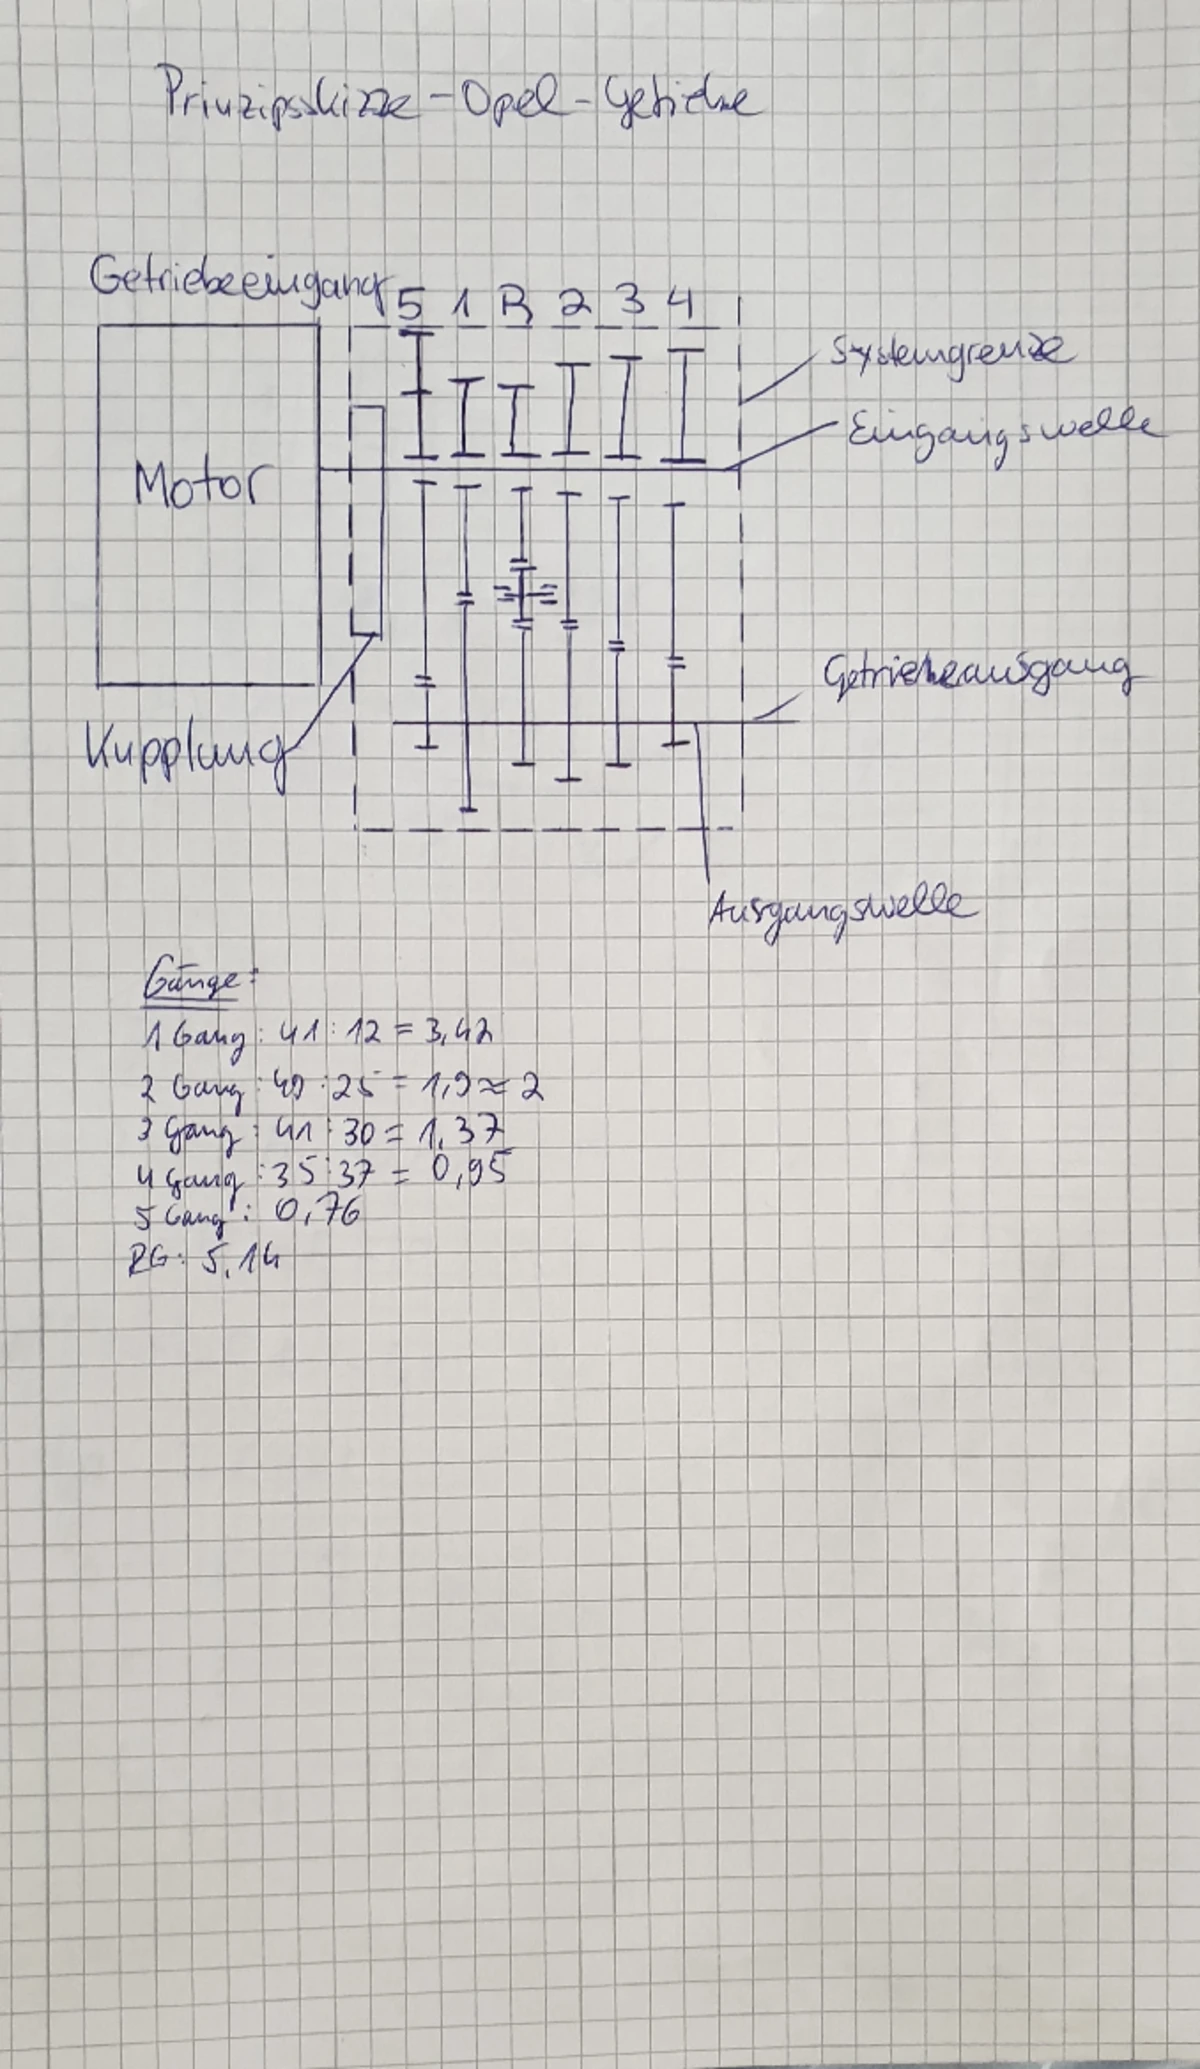 Prinzipsskizze - Opel - Getriebe
Getriebeeingang
5 1 R 2 3 4
Systemgrenze
Eingangswelle
Motor
Getriebeausgang
Kupplung
Ausgangswelle
Gänge:
1 Gang: 41:12 = 3,42
2 Gang: 49:25 = 1,9 ≈ 2
3 Gang: 41:30 = 1,37
4 Gang: 35:37 = 0,95
5 Gang: 0,76
RG: 5,14